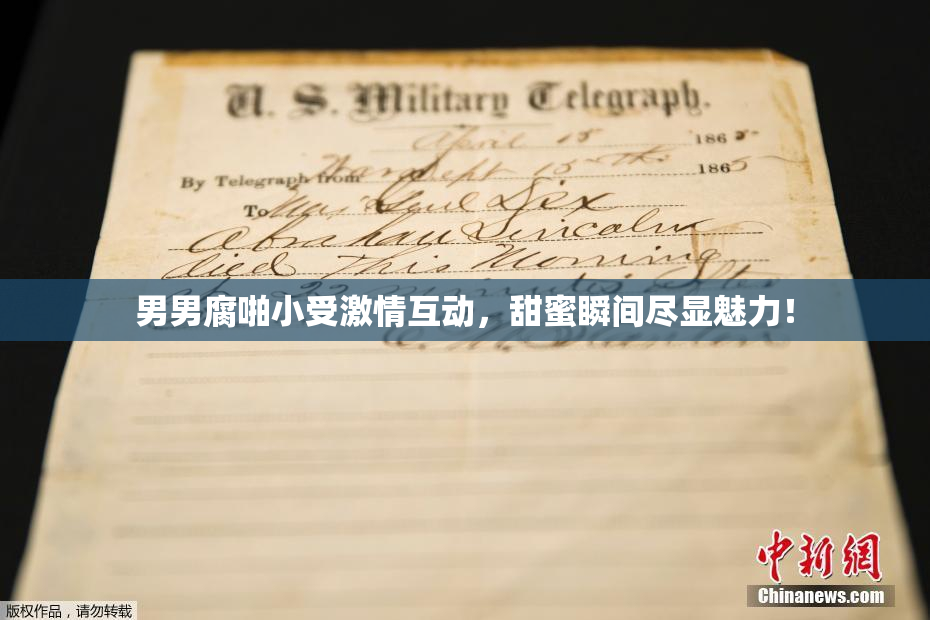 U. S. Military Telegraph.
April 15 1865
By Telegraph from War Dept 15th 1865
To Maj Genl Dix
Abraham Lincoln
died This Morning
at 22 minutes after
男男腐啪小受激情互动，甜蜜瞬间尽显魅力！
E. M. Stanton
中新網
Chinanews.com
版权作品，请勿转载